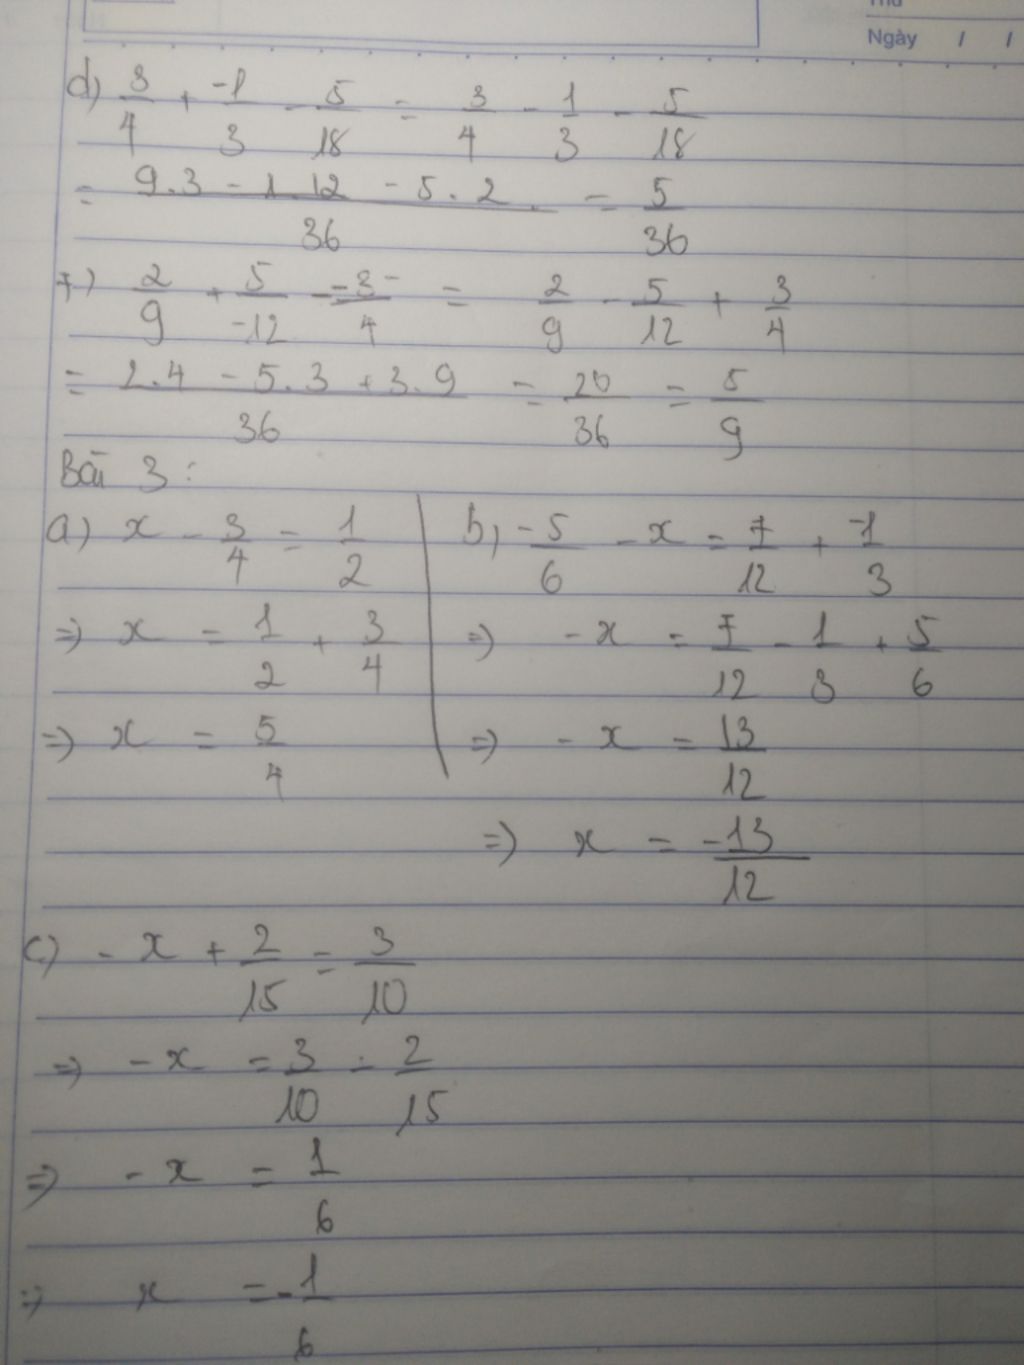 Thứ
Ngày / /
d) 3/4 + -1/3 - 5/18 = 3/4 - 1/3 - 5/18
= 9.3 - 1.12 - 5.2 / 36 = 5/36
f) 2/9 + 5/-12 - -3/4 = 2/9 - 5/12 + 3/4
= 2.4 - 5.3 + 3.9 / 36 = 20/36 = 5/9
Bài 3:
a) x - 3/4 = 1/2
=> x = 1/2 + 3/4
=> x = 5/4
b) -5/6 - x = 7/12 + -1/3
=> -x = 7/12 - 1/3 + 5/6
=> -x = 13/12
=> x = -13/12
c) -x + 2/15 = 3/10
=> -x = 3/10 - 2/15
=> -x = 1/6
=> x = -1/6